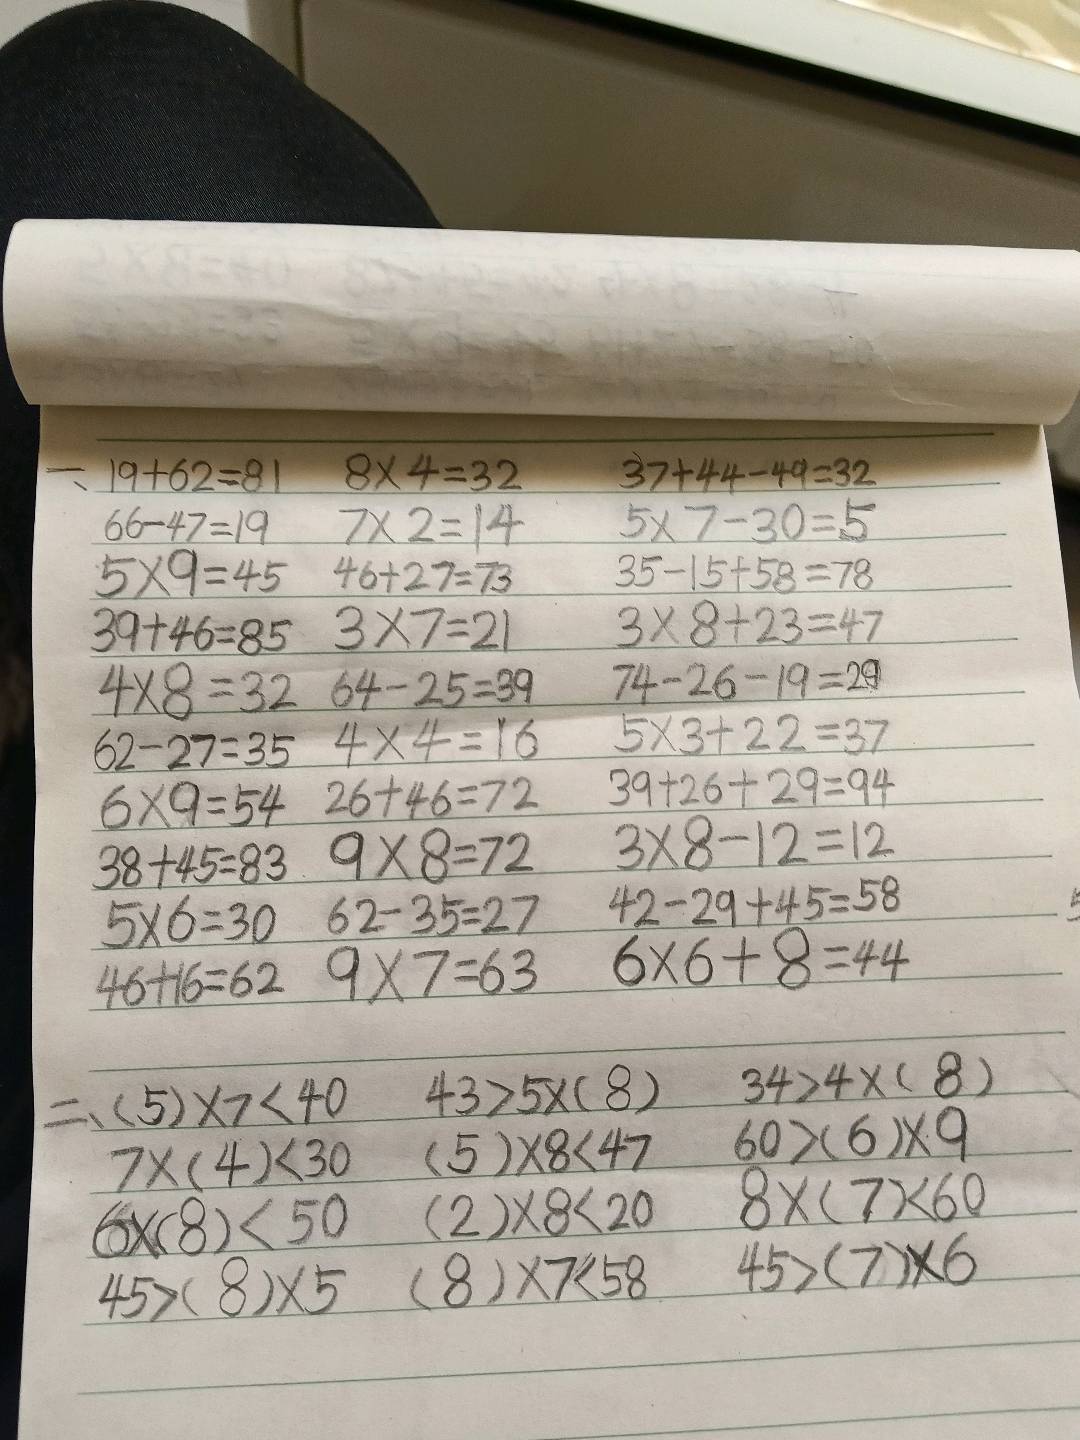 一、19+62=81 8×4=32 37+44-49=32
66-47=19 7×2=14 5×7-30=5
5×9=45 46+27=73 35-15+58=78
39+46=85 3×7=21 3×8+23=47
4×8=32 64-25=39 74-26-19=29
62-27=35 4×4=16 5×3+22=37
6×9=54 26+46=72 39+26+29=94
38+45=83 9×8=72 3×8-12=12
5×6=30 62-35=27 42-29+45=58
46+16=62 9×7=63 6×6+8=44
二、(5)×7<40 43>5×(8) 34>4×(8)
7×(4)<30 (5)×8<47 60>(6)×9
6×(8)<50 (2)×8<20 8×(7)<60
45>(8)×5 (8)×7<58 45>(7)×6